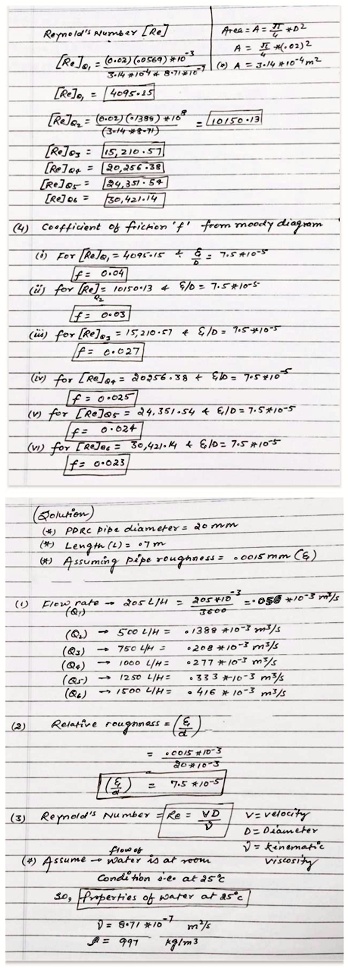 Reynold's Number [Re]
Area = A = π/4 * D2
A = π/4 * (.02)2
(o) A = 3.14 * 10-4 m2
[Re]Q1 = (0.02)(.0569) * 10-3 / 3.14 * 10-4 * 8.71 * 10-7
[Re]Q1 = 4095.15
[Re]Q2 = (0.02)(.1388) * 108 / (3.14 * 8.71) = 10150.13
[Re]Q3 = 15,210.57
[Re]Q4 = 20,256.38
[Re]Q5 = 24,351.54
[Re]Q6 = 30,421.14
(4) Coefficient of friction 'f' from moody diagram
(i) For [Re]Q1 = 4095.15 & ε/D = 7.5 * 10-5
f = 0.04
(ii) for [Re]Q2 = 10150.13 & ε/D = 7.5 * 10-5
f = 0.03
(iii) for [Re]Q3 = 15,210.57 & ε/D = 7.5 * 10-5
f = 0.027
(iv) for [Re]Q4 = 20256.38 & ε/D = 7.5 * 10-5
f = 0.025
(v) for [Re]Q5 = 24,351.54 & ε/D = 7.5 * 10-5
f = 0.024
(vi) for [Re]Q6 = 30,421.14 & ε/D = 7.5 * 10-5
f = 0.023
Solution
(*) PDRC pipe diameter = 20 mm
(*) Length (L) = .7 m
(*) Assuming pipe roughness = .0015 mm (ε)
(1) Flow rate (Q1) → 205 L/H = 205 * 10-3 / 3600 = * 10-3 m3/s
(Q2) → 500 L/H = .1388 * 10-3 m3/s
(Q3) → 750 L/H = .208 * 10-3 m3/s
(Q4) → 1000 L/H = .277 * 10-3 m3/s
(Q5) → 1250 L/H = .333 * 10-3 m3/s
(Q6) → 1500 L/H = .416 * 10-3 m3/s
(2) Relative rougnness = (ε/d)
= .0015 * 10-3 / 20 * 10-3
(ε/d) = 7.5 * 10-5
(3) Reynold's Number = Re = VD/ν
V = velocity
D = Diameter
ν = kinematic
viscosity
(*) Assume → flow of water is at room
Condition i.e. at 25°c
so, properties of water at 25°c
ν = 8.71 * 10-7 m2/s
ρ = 997 kg/m3